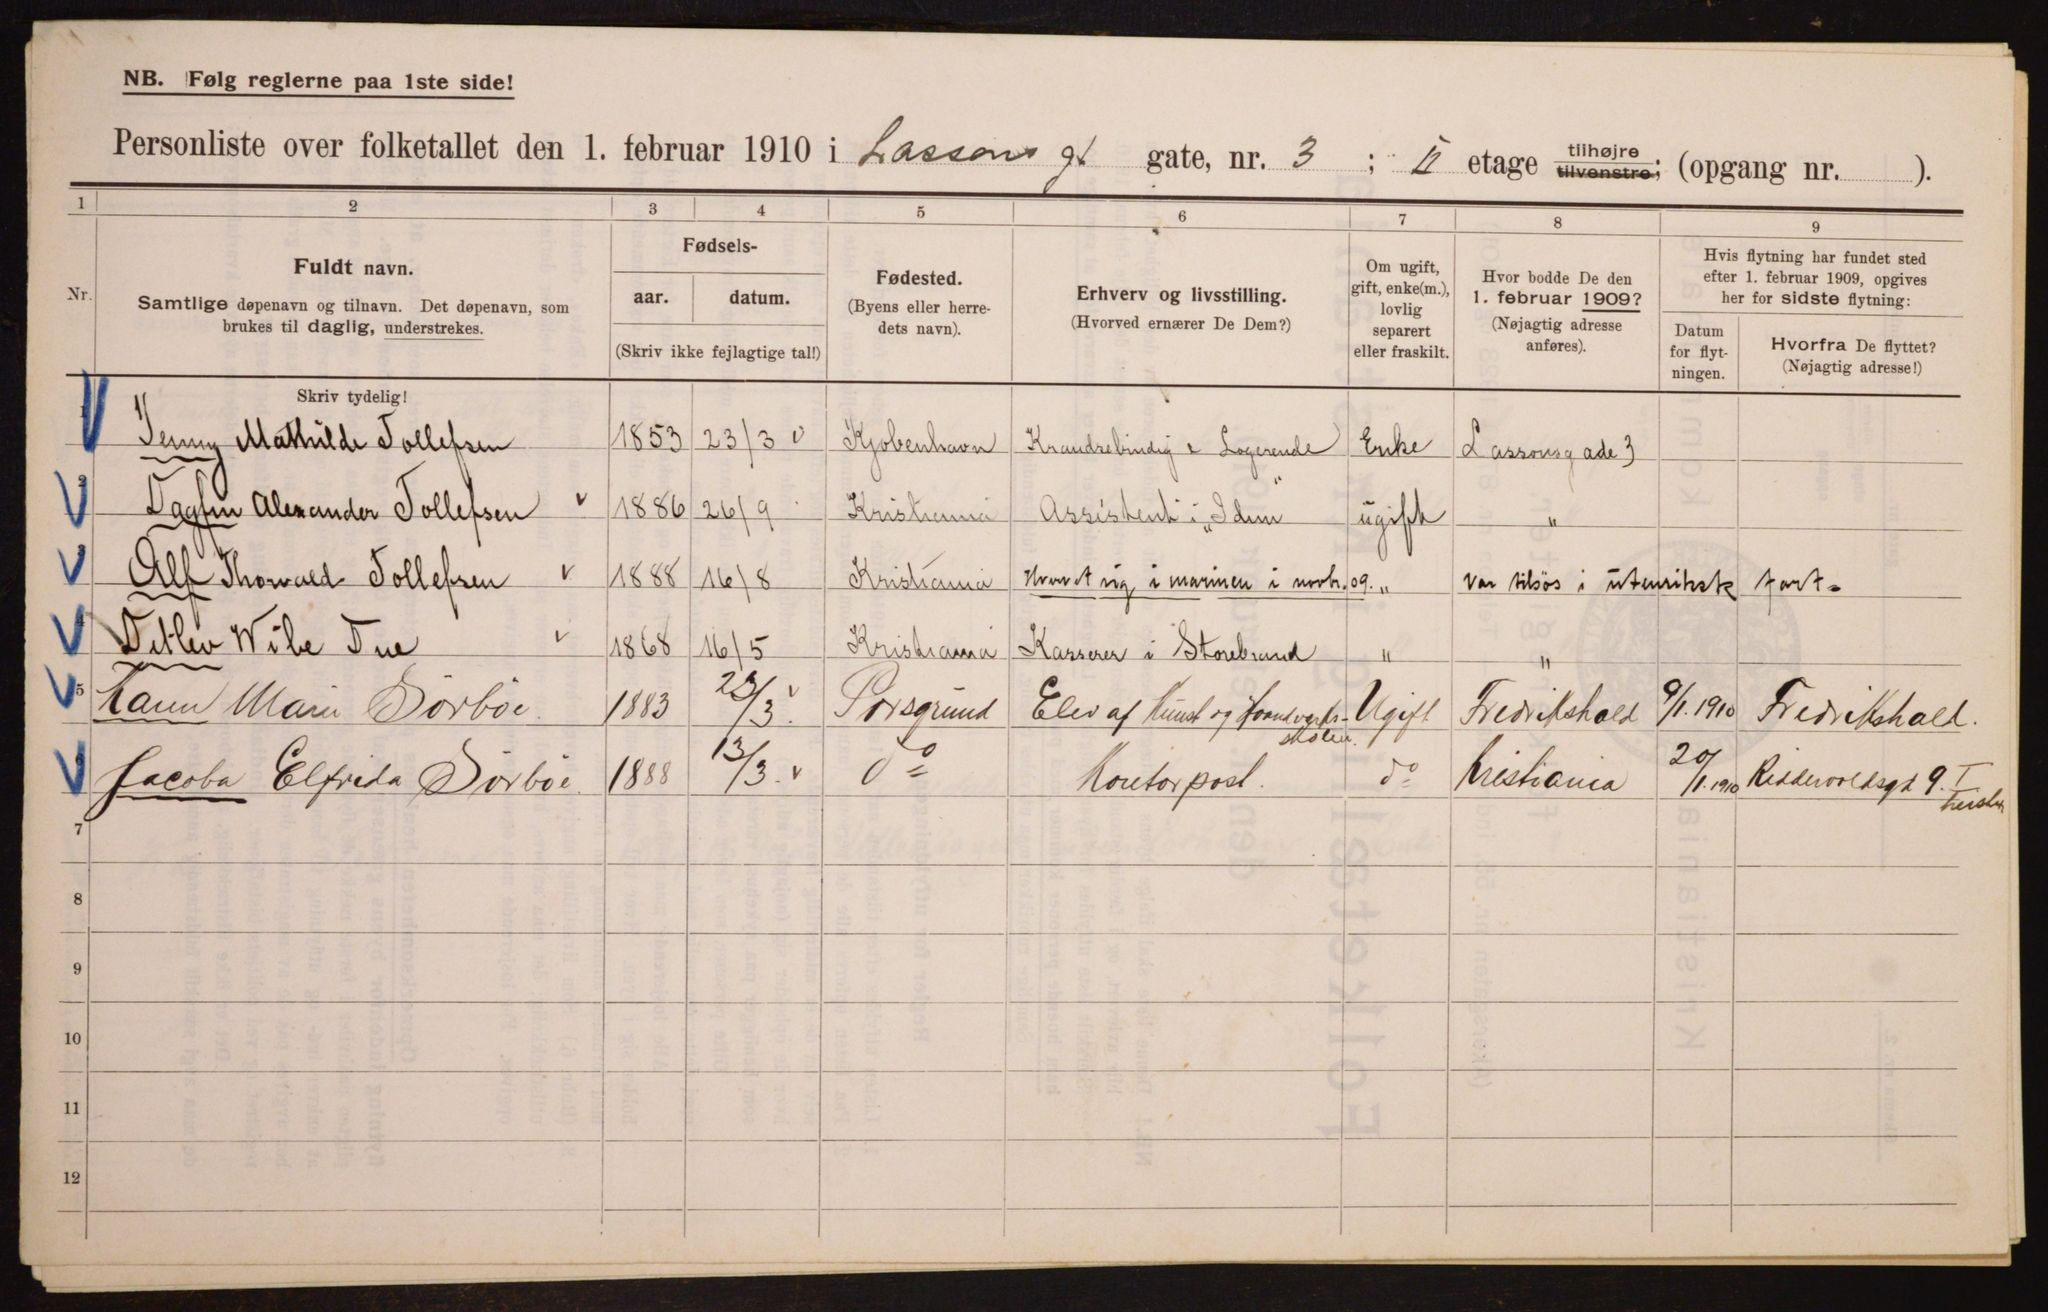 NB. Følg reglerne paa 1ste side!
Personliste over folketallet den 1. februar 1910 i Lassons gt gate, nr. 3 ; II etage tilhøjre tilvenstre; (opgang nr. ).
1 2 3 4 5 6 7 8 9
Nr.
Fuldt navn.
Samtlige døpenavn og tilnavn. Det døpenavn, som
brukes til daglig, understrekes.
Fødsels-
aar. datum.
(Skriv ikke fejlagtige tal!)
Fødested.
(Byens eller herre-
dets navn).
Erhverv og livsstilling.
(Hvorved ernærer De Dem?)
Om ugift,
gift, enke(m.),
lovlig
separert
eller fraskilt.
Hvor bodde De den
1. februar 1909?
(Nøjagtig adresse
anføres).
Hvis flytning har fundet sted
efter 1. februar 1909, opgives
her for sidste flytning:
Datum
for flyt-
ningen.
Hvorfra De flyttet?
(Nøjagtig adresse!)
Skriv tydelig!
1 Jenny Mathilde Tollefsen 1853 23/3 Kjøbenhavn Krandsebindig & Logerende Enke Lassonsgade 3
2 Dagfin Alexander Tollefsen 1886 26/9 Kristiania Assistent i „Idun" ugift "
3 Alf Thorvald Tollefsen 1888 16/8 Kristiania Hvervet sig i marinen i novbr. 09. " Var tilsøs i utenriksk fart.
4 Ditlev Wibe Tue 1868 16/5 Kristiania Kasserer i Storebrand " "
5 Karen Marie Sörböe 1883 23/3 Porsgrund Elev af Kunst og Haandverks- Ugift Fredrikshald 9/1.1910 Fredrikshald.
skolen.
6 Jacoba Elfrida Sörböe. 1888 13/3. do Kontorpost. do Kristiania 20/1.1910 Riddervoldsgt 9. I
7
8
9
10
11
12